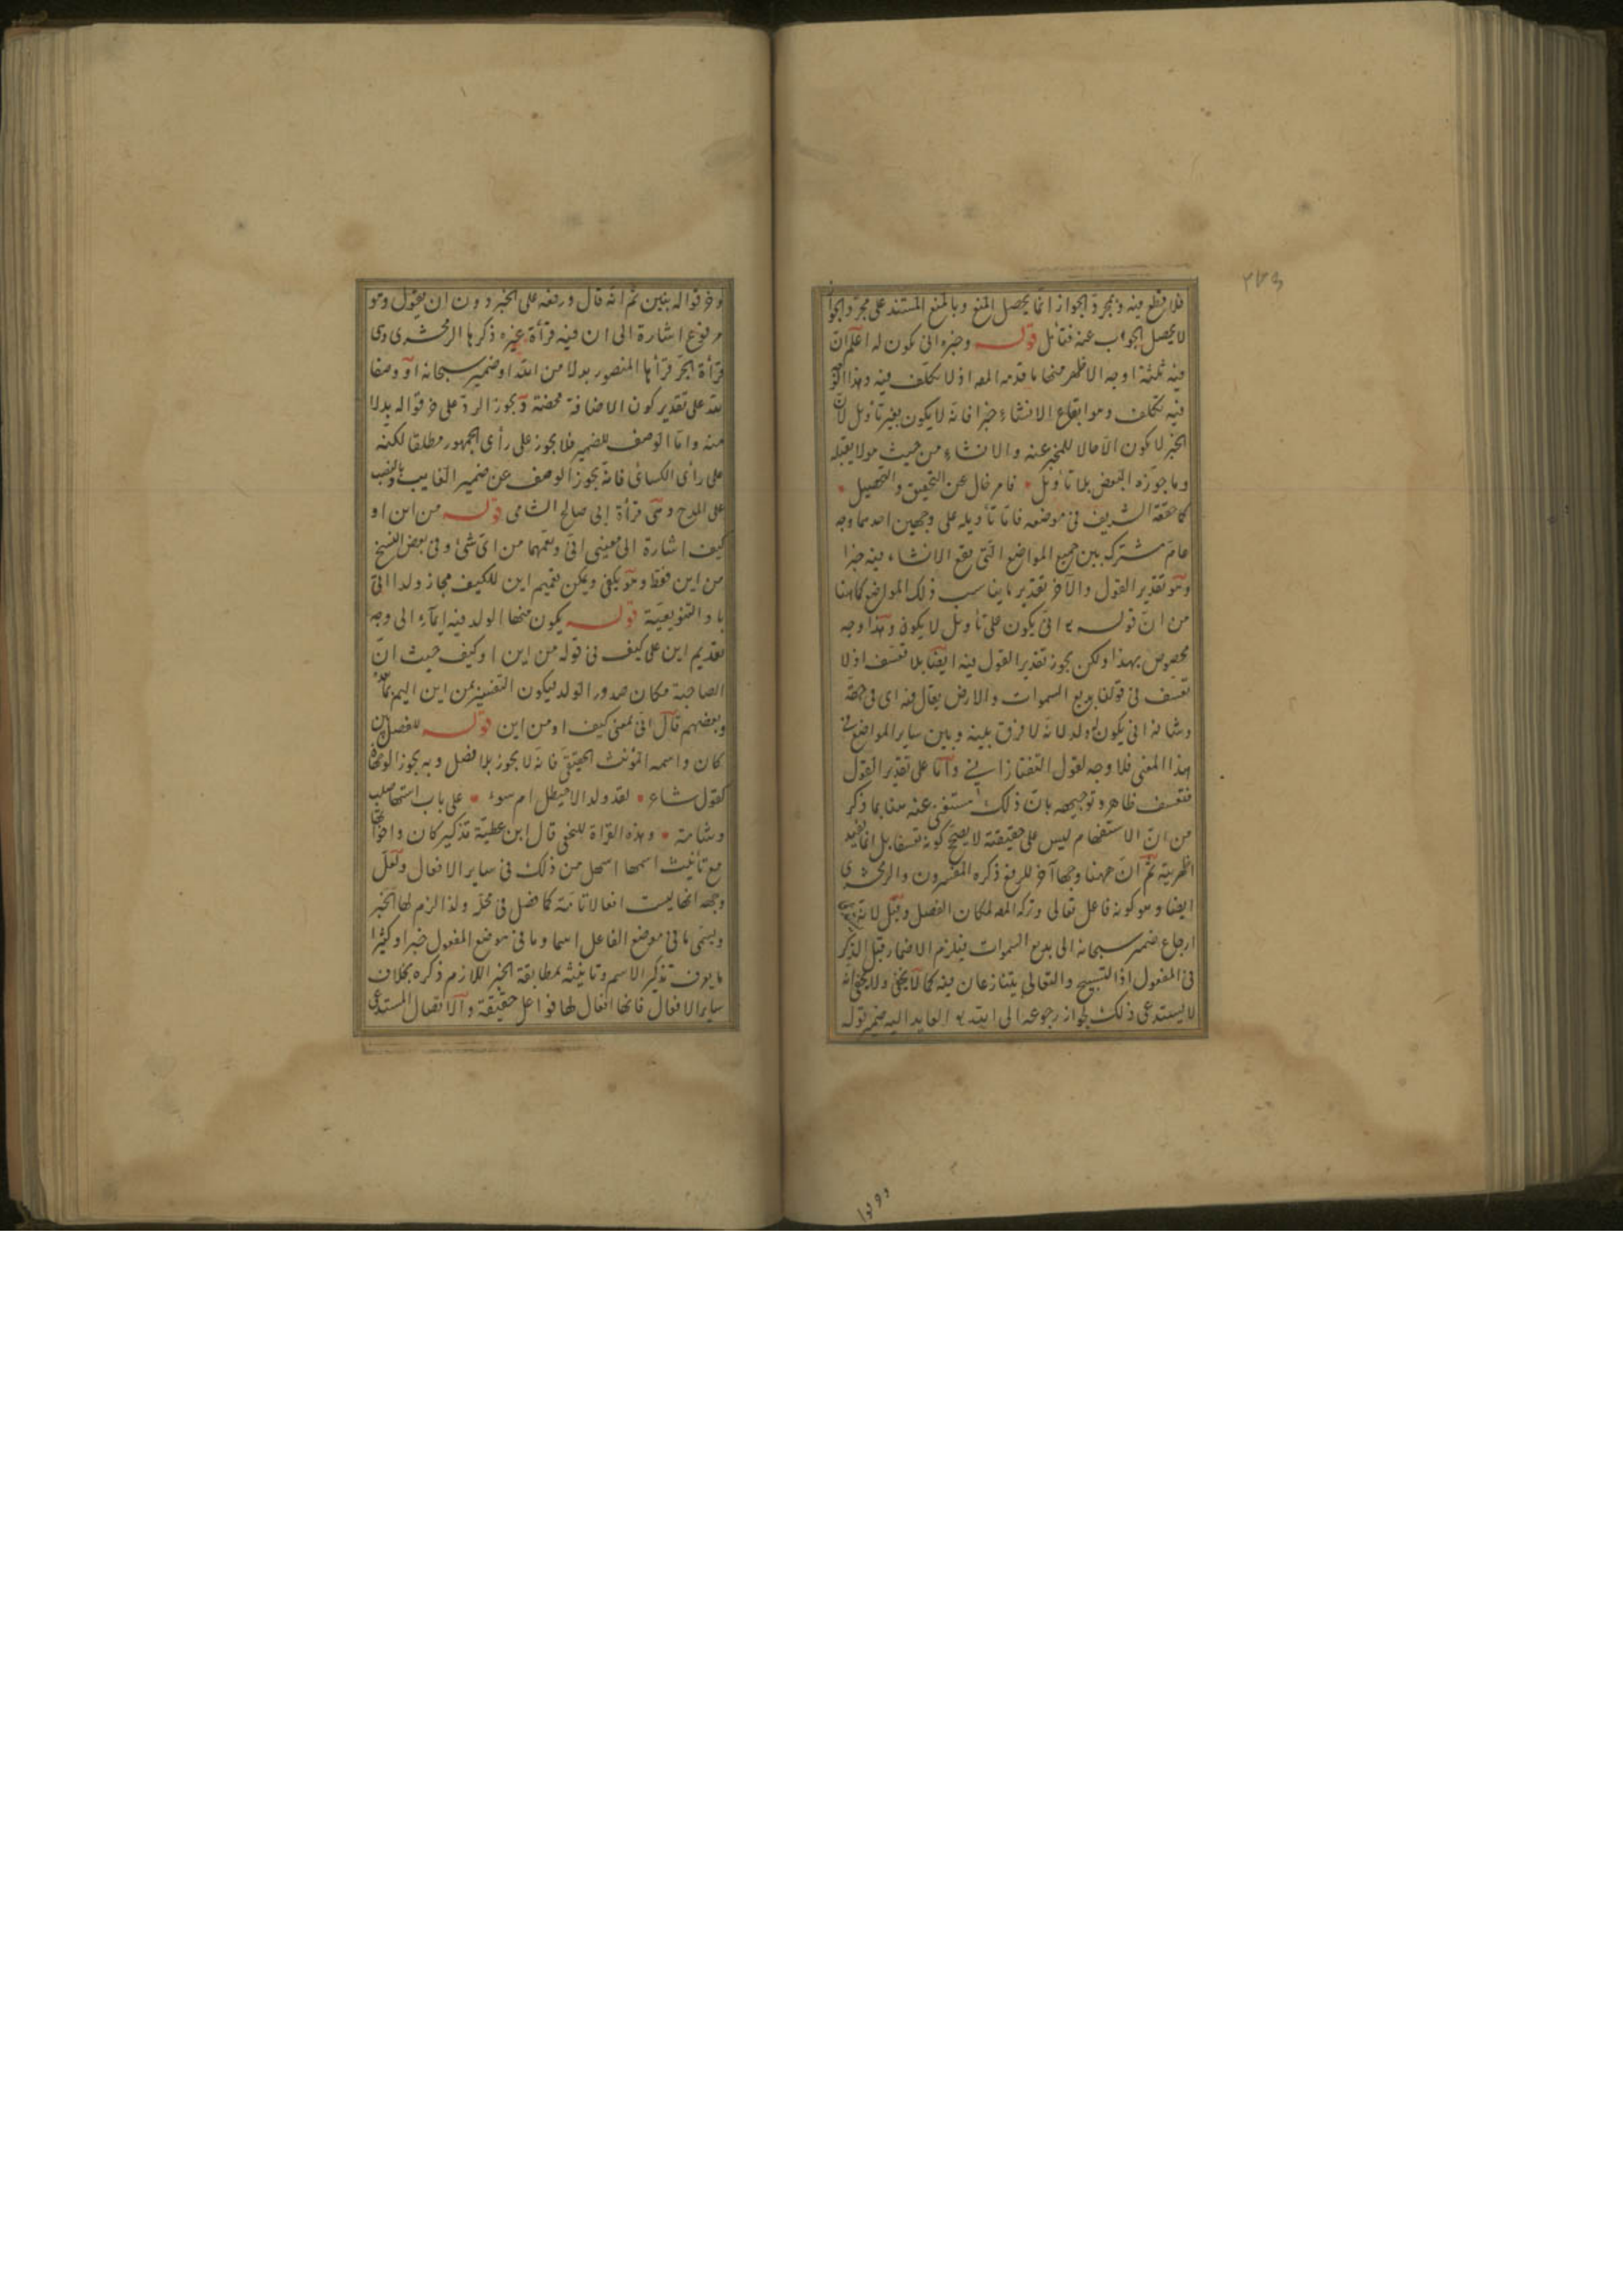 ٢٧٩
فلا قطع فيه وبمجرد الجواز انما يحصل المنع وبالمنع المستند على مجرد الجواز
لا يحصل الجواب عنه فتأمل قوله وخبره انى يكون له اعلم ان
فيه ثلثة اوجه الاظهر منها ما قدمه المصـ اذ لا تكلف فيه وهذا
فيه تكلف وهو ايقاع الانشاء خبرا فانه لا يكون بغير تأويل لان
الخبر لا يكون الا حالا للمخبر عنه والانشاء من حيث هو لا يقبله
وما جوزه البعض بلا تأويل فامر خال عن التحقيق والتحصيل
كما حققه الشريف في موضعه فاما تأويله على وجهين احدهما وجه
عام مشترك بين جميع المواضع التي يقع الانشاء فيه خبرا
وهو تقدير القول والآخر تقدير ما يناسب ذلك المواضع كما هنا
من ان قوله انى يكون على تأويل لا يكون وهذا وجه
مخصوص بهذا ولكن يجوز تقدير القول فيه ايضا بلا تعسف اذ لا
تعسف في قولنا بديع السموات والارض يقال فيه اى في حقه
وشانه انى يكون له ولد لانه لا فرق بينه وبين ساير المواضع في
هذا المعنى فلا وجه لقول التفتازاني واما على تقدير القول
فتعسف ظاهر وتوجيهه بان ذلك مستغنى عنه هنا بما ذكر
من ان الاستفهام ليس على حقيقته لا يصحح كونه تعسفا بل انما يفيد
اظهريته ثم ان ههنا وجها آخر للرفع ذكره المفسرون والزمخشرى
ايضا وهو كونه فاعل تعالى وتركه المصـ لمكان الفصل وقيل لانه
ارجاع ضمير سبحانه الى بديع السموات فيلزم الاضمار قبل الذكر
في المفعول اذ التسبيح والتعالى يتنازعان فيه كما لا يخفى ولا يخفى انه
لا يستدعى ذلك لجواز رجوعه الى الله العايد اليه ضمير قوله
وخرقوا
وخرقوا له بنين ثم انه قال ورفعه على الخبر دون ان يقول وهو
مرفوع اشارة الى ان فيه قرأة غيره ذكرها الزمخشرى وهى
قرأة الجر قرأها المنصور بدلا من الله او ضمير سبحانه او وصفا
لله على تقدير كون الاضافة محضة ويجوز الرد على خرقوا له بدلا
منه واما الوصف للضمير فلا يجوز على رأى الجمهور مطلقا لكنه
على رأى الكسائى فانه يجوز الوصف عن ضمير الغايب والنصب
على المدح وهى قرأة ابى صالح الشامى قوله من اين او
كيف اشارة الى معنيى انى ويعمهما من اى شئ وفى بعض النسخ
من اين فقط وهو يكفى ويمكن تعميم اين للكيف مجاز ولذا اتى
باو التنويعية قوله يكون منها الولد فيه ايماء الى وجه
تقديم اين على كيف فى قوله من اين او كيف حيث ان
الصاحبة مكان صدور الولد ليكون التفسير بمن اين اليم
وبعضهم قال انى بمعنى كيف او من اين قوله للفصل بين
كان واسمه المؤنث الحقيقى فانه لا يجوز بلا فصل وبه يجوز
كقول شاعر لقد ولد الاخيطل ام سوء على باب استها صلب
وشامة وهذه القراة للنخعى قال ابن عطية تذكير كان واخواتها
مع تأنيث اسمها اسهل من ذلك فى ساير الافعال ولعل
وجهه انها ليست افعالا تامة كما فصل فى محله ولذا الزم لها الخبر
ويسمى ما فى موضع الفاعل اسما وما فى موضع المفعول خبرا وكثيرا
ما يعرف تذكير الاسم وتانيثه بمطابقة الخبر اللازم ذكره بخلاف
ساير الافعال فانها افعال لها فواعل حقيقة والاتصال المستدعى